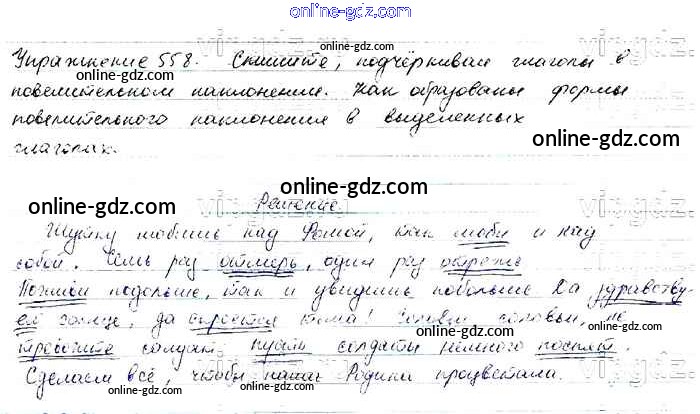 online-gdz.com
Упражнение 558. Спишите, подчёркивая глаголы в
online-gdz.com
повелительном наклонении. Как образованы формы
online-gdz.com
повелительного наклонения в выделенных
online-gdz.com
глаголах.
online-gdz.com
Решение.
Шутку любишь над Фомой, так люби и над
собой. Семь раз отмерь, один раз отрежь
online-gdz.com
Поживи подольше, так и увидишь побольше Да здравству-
ет солнце, да скроется тьма! соловьи, не
online-gdz.com
тревожьте солдат пусть солдаты немного поспят.
online-gdz.com
Сделаем всё, чтобы наша Родина процветала.
online-gdz.com
online-gdz.com